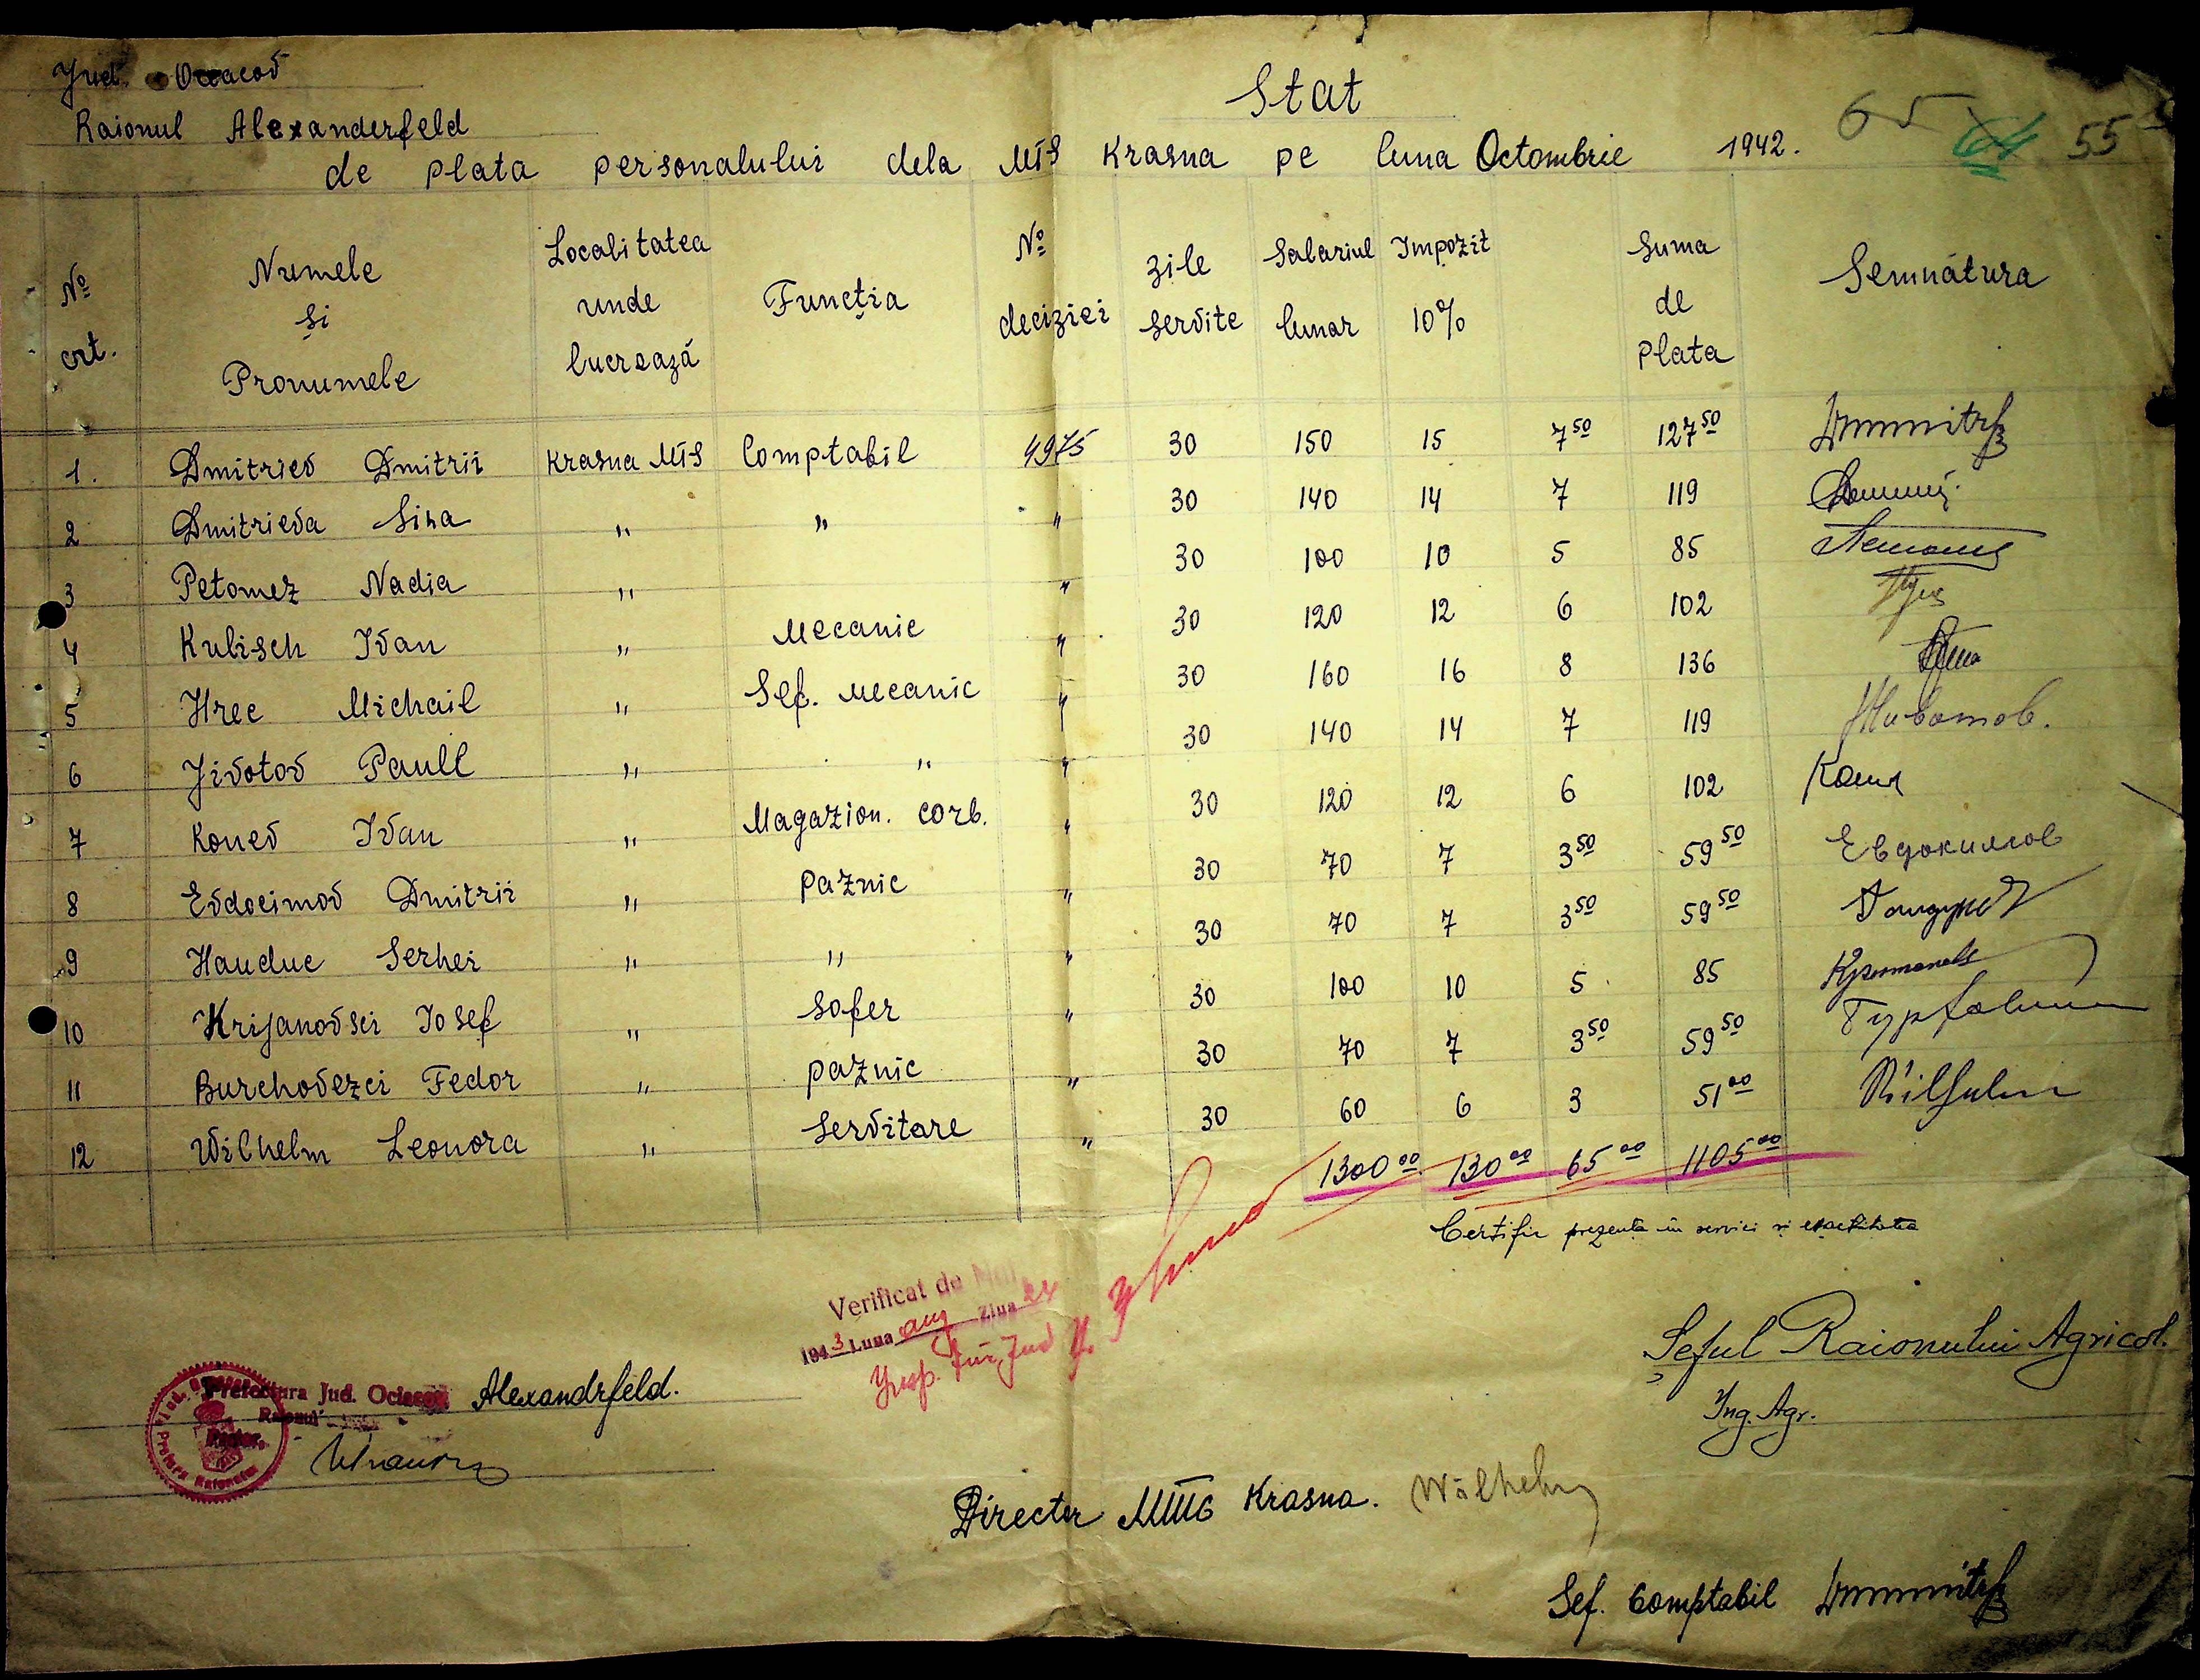 Jud. Oceacov
Raionul Alexanderfeld
Stat
de plata personalului dela MTS Krasna pe luna Octombrie 1942.
65 64 55
No crt. Numele și Pronumele Localitatea unde lucrează Funcția No deciziei zile servite Salariul lunar Impozit 10% Suma de plata Semnătura
1. Dmitriev Dmitrii Krasna MTS Comptabil 4975 30 150 15 7 50 127 50
2 Dmitrieva Sina " " " 30 140 14 7 119
3 Petomez Nadia " " 30 100 10 5 85
4 Kulisch Ivan " Mecanic " 30 120 12 6 102
5 Hrec Michail " Sef. Mecanic " 30 160 16 8 136
6 Jivotov Paull " " " 30 140 14 7 119 Животов.
7 Konev Ivan " Magazion. corb. " 30 120 12 6 102
8 Evdocimov Dmitrii " paznic " 30 70 7 3 50 59 50 Евдокимов
9 Hauduc Serhei " " " 30 70 7 3 50 59 50
10 Krijanovsci Iosef " Sofer " 30 100 10 5 85
11 Burchovezci Fedor " paznic " 30 70 7 3 50 59 50
12 Wilhelm Leonora " Servitore " 30 60 6 3 51 00 Wilhelm
1300 00 130 00 65 00 1105 00
Certific prezenta in servici si exactitatea
Verificat de Noi
1943 Luna aug Ziua 24
Șeful Raionului Agricol.
Ing. Agr.
Prefectura Jud. Oceacov Alexandrfeld.
Raionul
Pretor
Pretura Raionului
Director MTS Krasna. Wilhelm
Sef. Comptabil